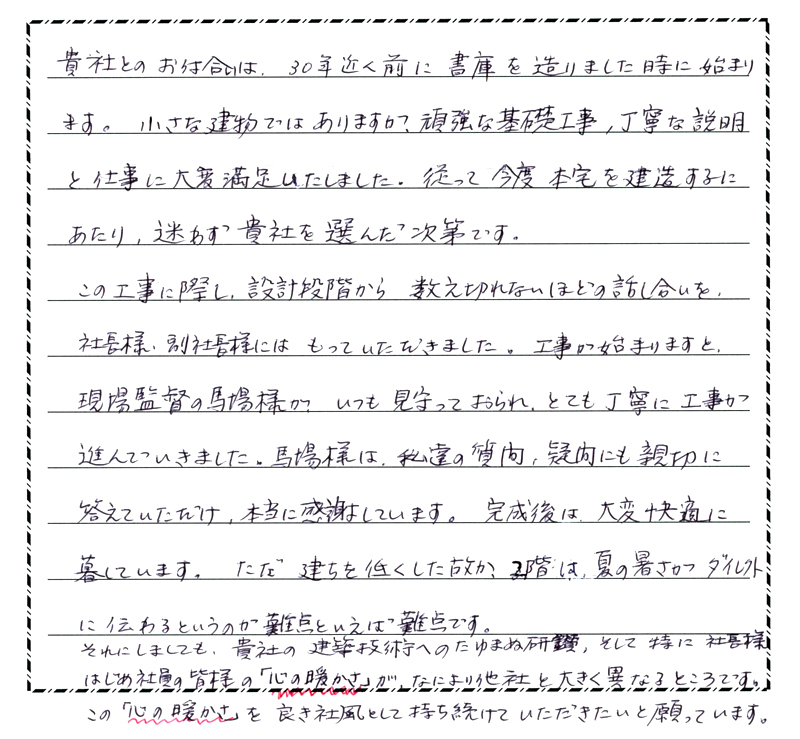 貴社とのお付合いは、30年近く前に書庫を造りました時に始まり
ます。小さな建物ではありますが、頑強な基礎工事、丁寧な説明
と仕事に大変満足いたしました。従って今度本宅を建造するに
あたり、迷わず貴社を選んだ次第です。
この工事に際し、設計段階から数え切れないほどの話し合いを、
社長様、副社長様にはもっていただきました。工事が始まりますと、
現場監督の馬場様が、いつも見守っておられ、とても丁寧に工事が
進んでいきました。馬場様は、私達の質問、疑問にも親切に
答えていただけ、本当に感謝しています。完成後は、大変快適に
暮しています。ただ建ちを低くした故か、2階は、夏の暑さがダイレクト
に伝わるというのが難点といえば難点です。
それにしましても、貴社の建築技術へのたゆまぬ研鑽、そして特に社長様
はじめ社員の皆様の「心の暖かさ」が、なにより他社と大きく異なるところです。
この「心の暖かさ」を良き社風として持ち続けていただきたいと願っています。